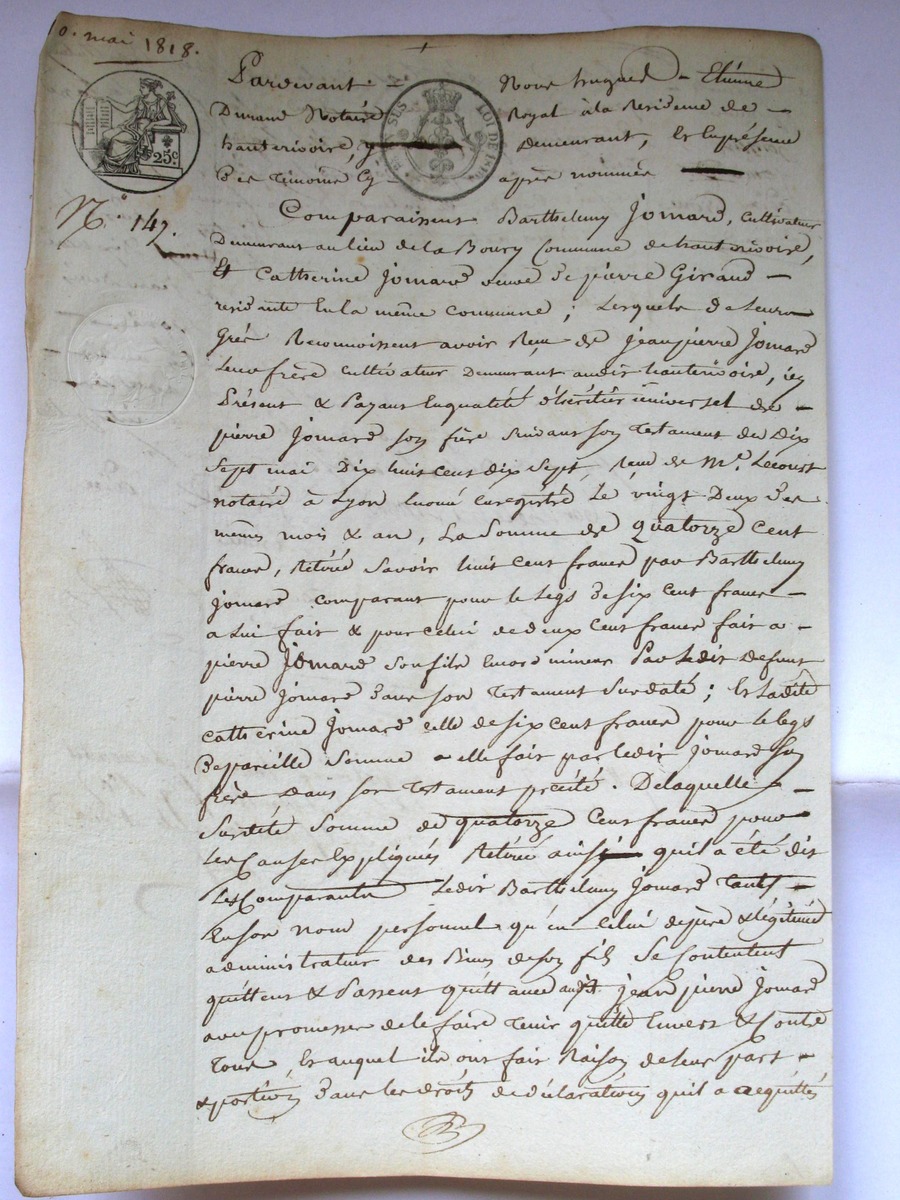 10. mai 1818.
Pardevant Nous hugues - Etienne
Durand Notaire Royal à la Residence de -
hauterivoire, y demeurant, Et En présence
Des Témoins Cy - après nommés
25c
N.° 147.
Comparaissent Barthelemy Jomard, cultivateur
Demeurant au lieu de la Boury Commune de hauterivoire,
Et Catherine Jomard veuve de pierre Giraud -
residante En la même Commune ; Lesquels de Leurs
Grés Reconnoissent avoir Reçu de Jean pierre Jomard
Leur frère Cultivateur Demeurant audit hauterivoire, icy
Présent & Payant En qualité d'héritier universel de -
pierre Jomard son frère Suivant son Testament du Dix
Sept mai Dix huit cent dix Sept, Reçu de Me. Lecourt
notaire à Lyon Enregistré Le vingt Deux des
mêmes mois & an, La Somme de Quatorze Cent
francs, Retirée Savoir huit Cent francs par Barthelemy
Jomard comparant pour le Legs de Six Cent francs -
a Lui fait & pour Celui de deux Cent francs fait a -
pierre Jomard Son fils Encore mineur Par Ledit Defunt
pierre Jomard dans son Testament Susdaté ; Et Ladite
Catherine Jomard celle de Six Cent francs pour Le Legs
de pareille Somme a elle fait par Ledit Jomard Son
frère Dans son Testament précité. De laquelle -
Susdite Somme de quatorze Cent francs pour
Les Causes Expliquées Retirée ainsi qu'il a été dit
Les Comparants Ledit Barthelemy Jomard Tant -
En son nom personnel qu'en Celui de père & légitime
administrateur des Biens de son fils Se Contentent
quittent & Passent quittance audit Jean pierre Jomard
avec promesse de le faire Tenir quitte Envers & Contre
Tous Et auquel ils ont fait Raison de leur part -
& portion dans les droits de déclaration qu'il a acquittés